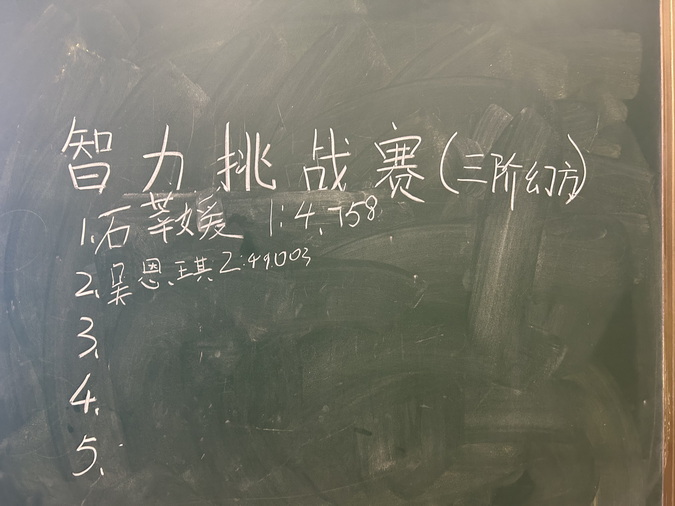 智力挑战赛(三阶幻方)
1.石莘媛 1:4.758
2.吴恩琪 2:49.003
3.
4.
5.